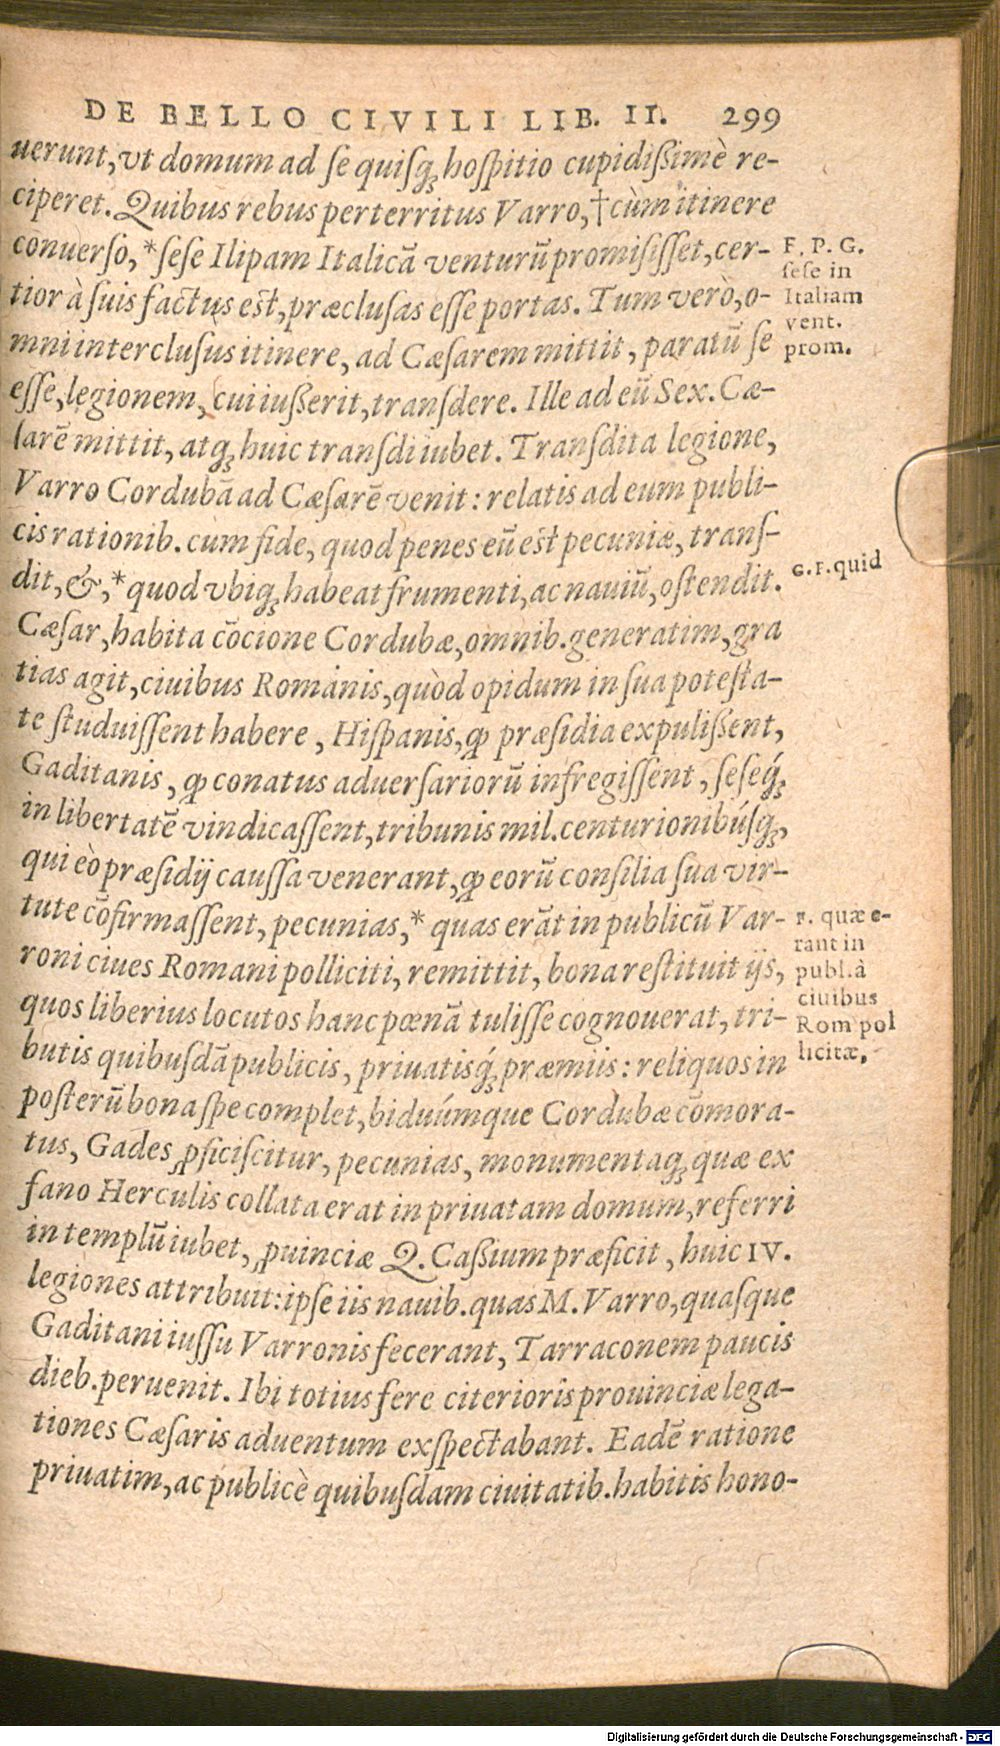 DE BELLO CIVILI LIB. II. 299
uerunt, vt domum ad se quisq́; hospitio cupidißimè re-
ciperet. Quibus rebus perterritus Varro, †cùm itinere
conuerso, * sese Ilipam Italicā venturū promisisset, cer-
tior à suis factus est, præclusas esse portas. Tum verò, o-
mni interclusus itinere, ad Cæsarem mittit, paratū se
esse, legionem, cui iußerit, transdere. Ille ad eū Sex. Cæ-
sarē mittit, atq; huic transdi iubet. Transdita legione,
Varro Cordubā ad Cæsarē venit: relatis ad eum publi-
cis rationib. cum fide, quod penes eū est pecuniæ, trans-
dit, &, * quod vbiq; habeat frumenti, ac nauiū, ostendit.
Cæsar, habita cōcione Cordubæ, omnib. generatim, gra
tias agit, ciuibus Romanis, quòd opidum in sua potesta-
te studuissent habere, Hispanis, ꝙ præsidia expulißent,
Gaditanis, ꝙ conatus aduersariorū infregissent, seseq́;
in libertatē vindicassent, tribunis mil. centurionibúsq;,
qui eò præsidij caussa venerant, ꝙ eorū consilia sua vir-
tute cōfirmassent, pecunias, * quas erāt in publicū Var-
roni ciues Romani polliciti, remittit, bona restituit ijs,
quos liberius locutos hanc pœnā tulisse cognouerat, tri-
butis quibusdā publicis, priuatisq́; præmiis: reliquos in
posterū bona spe complet, biduúmque Cordubæ cōmora-
tus, Gades ꝓficiscitur, pecunias, monumentaq; quæ ex
fano Herculis collata erat in priuatam domum, referri
in templū iubet, ꝓuinciæ Q. Caßium præficit, huic IV.
legiones attribuit: ipse iis nauib. quas M. Varro, quasque
Gaditani iussu Varronis fecerant, Tarraconem paucis
dieb. peruenit. Ibi totius fere citerioris prouinciæ lega-
tiones Cæsaris aduentum exspectabant. Eadē ratione
priuatim, ac publicè quibusdam ciuitatib. habitis hono-
F. P. G.
sese in
Italiam
vent.
prom.
G. F. quid
F. quæ e-
rant in
publ. à
ciuibus
Rom pol
licitæ,
Digitalisierung gefördert durch die Deutsche Forschungsgemeinschaft - DFG